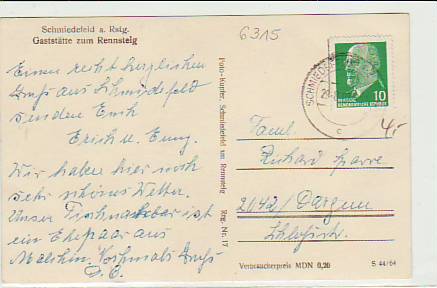 Schmiedefeld a. Rstg.
Gaststätte zum Rennsteig
6315
Einen recht herzlichen
Gruß aus Schmiedefeld
senden Euch
Erich u.
Wir haben hier noch
sehr schönes Wetter.
Unser Tischnachbar ist
ein Ehepaar aus
Malchin. Vochmals Gruß
D. O.
Foto-Kunte, Schmiedefeld am Rennsteig
Reg. Nr. 17
SCHMIEDEFELD
c
10
DEUTSCHE
DEMOKRATISCHE REPUBLIK
4,-
Faml.
Richard
2042/ Dargun
Schloßstr.
Verbraucherpreis MDN 0,20
S 44/64